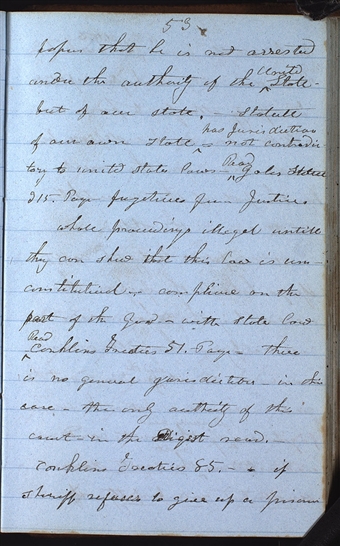 53
papers that he is not arrested
under the authority of the United State -
but of our state. - Statute
of our own State has jurisdiction not contradic
tory to United States laws - Read Gales Statute
315. Page fugitives from Justice
whole proceedings illegal untill
they can show that this law is un-
constitutional - compliance on the
part of the Gov - with State law
Read Conklins Treaties 51. Page - there
is no general jurisdiction - in this
case - the only authority of this
court - in the Digest read. -
Conklins Treaties 85. - - if
sheriff refuses to give up a prison